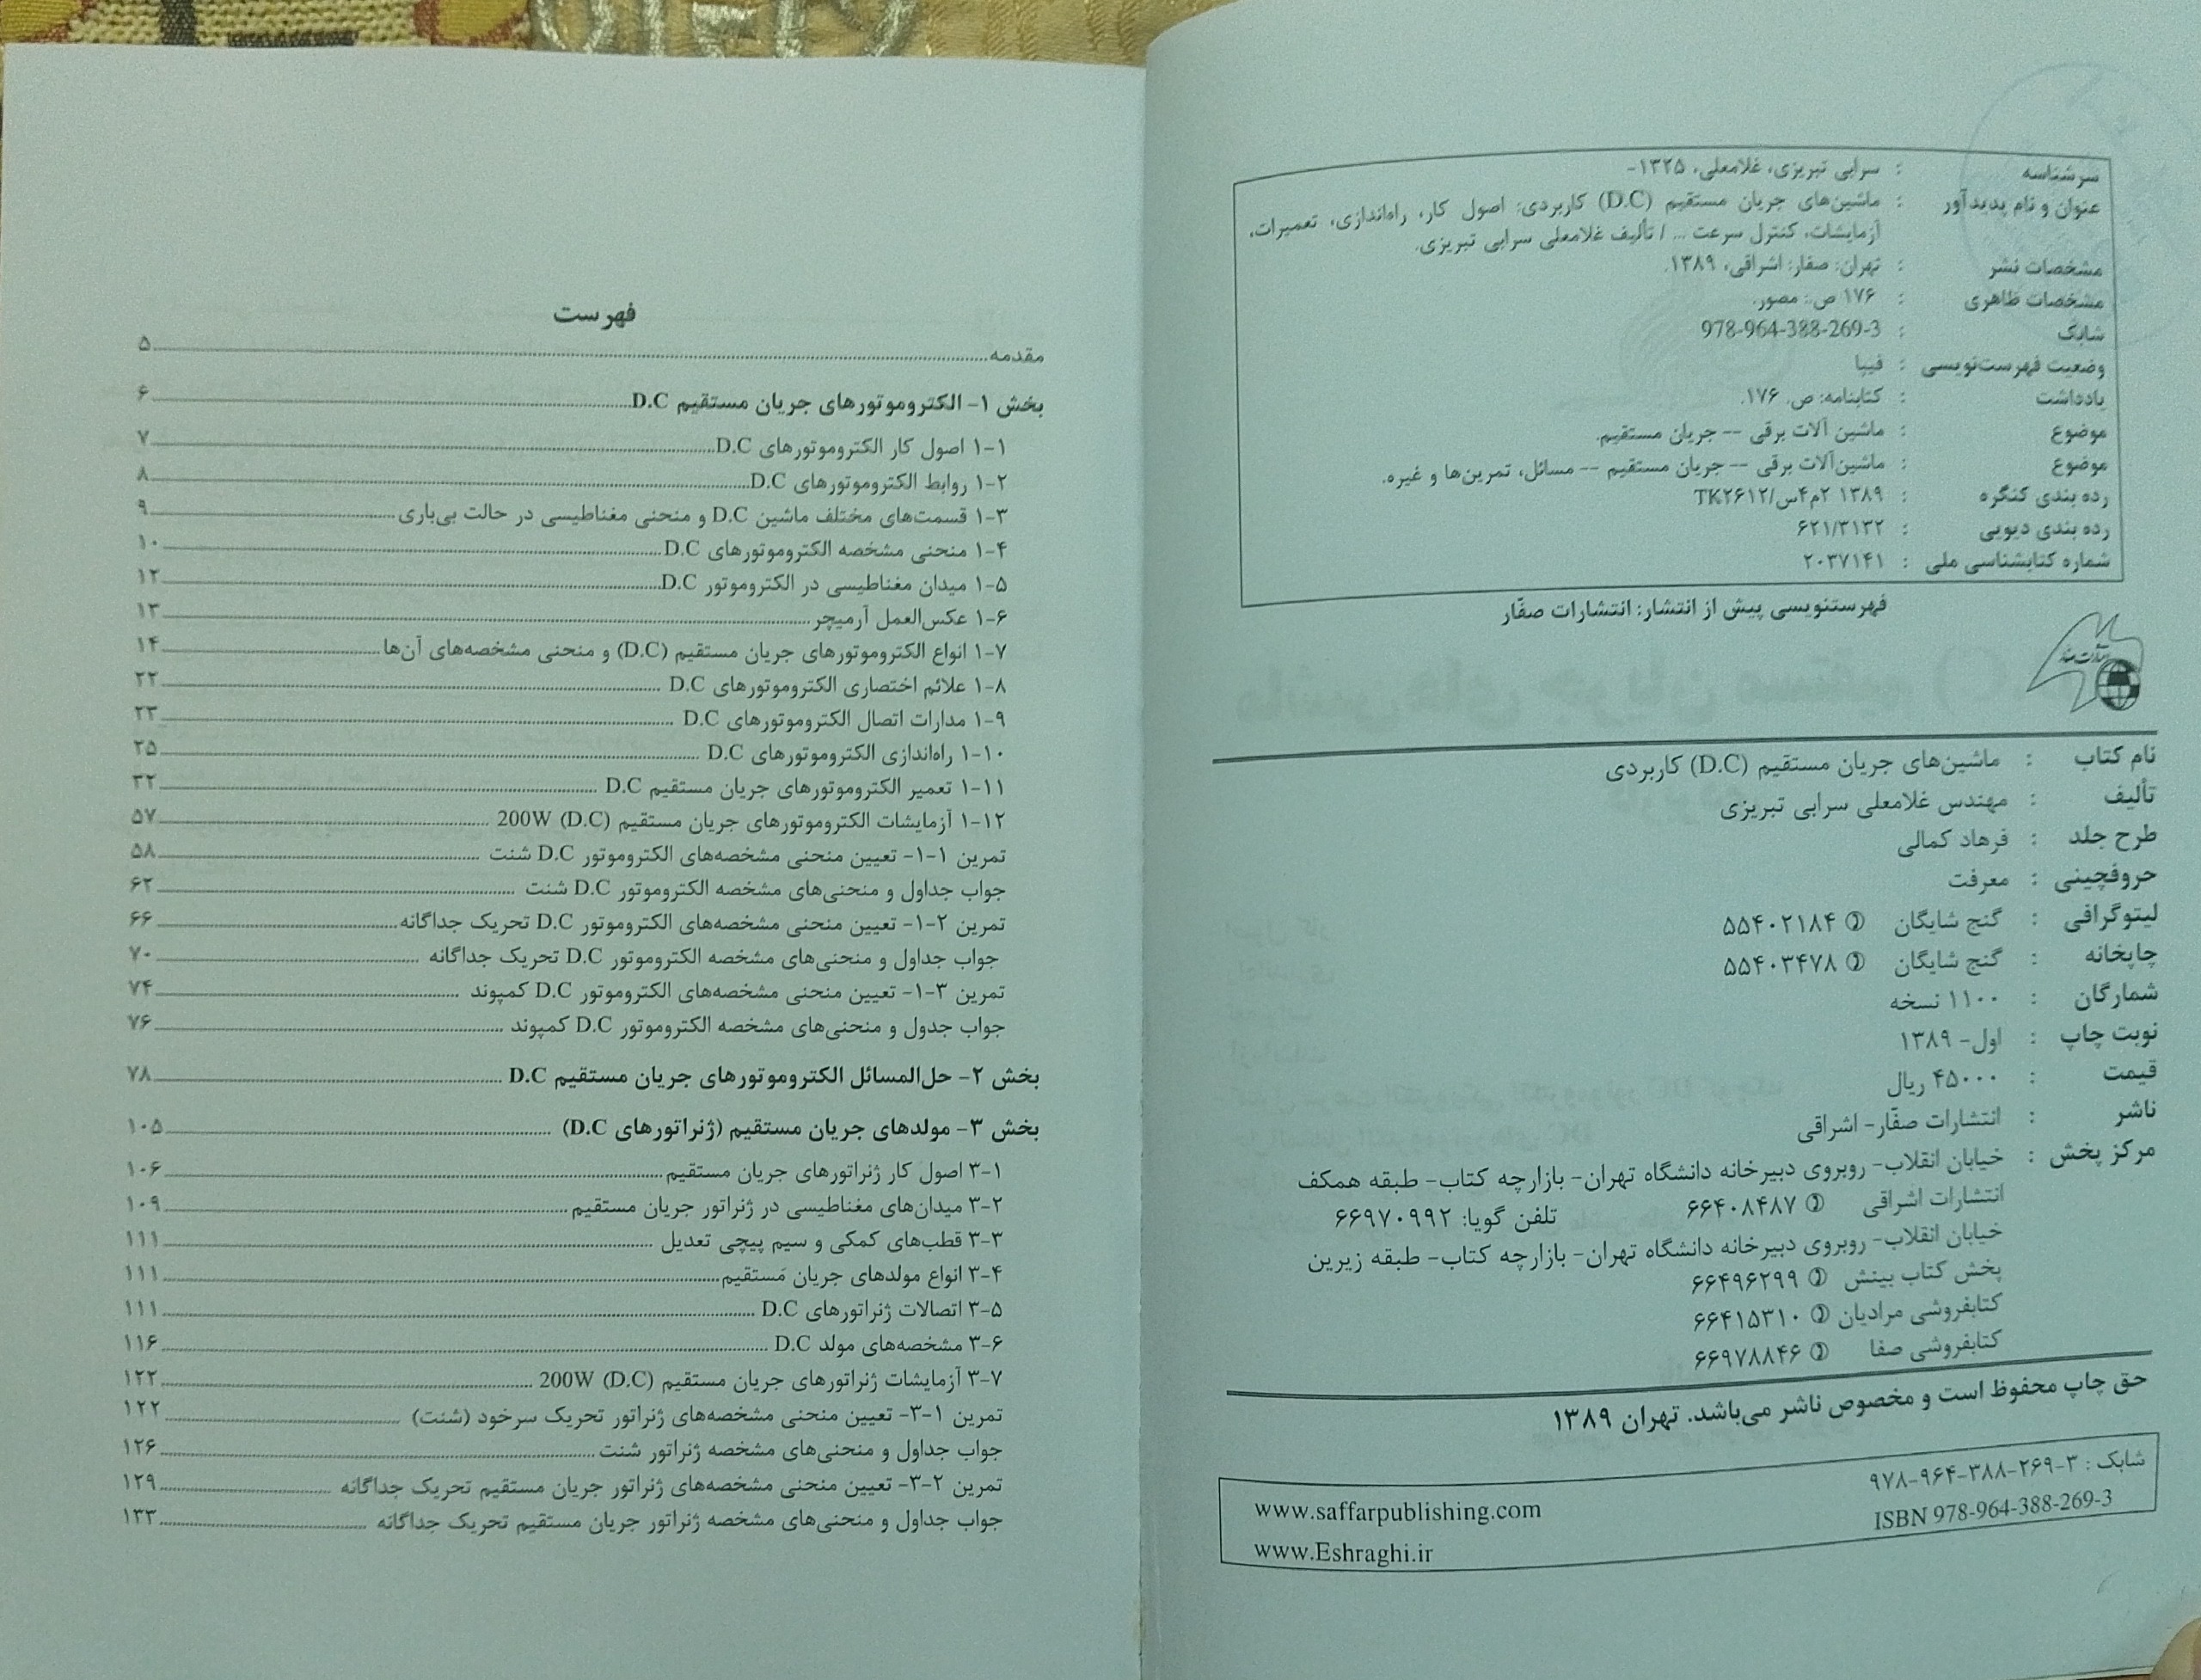 سرشناسه : سرابی تبریزی، غلامعلی، ۱۳۲۵-
عنوان و نام پدیدآور : ماشین‌های جریان مستقیم (D.C) کاربردی: اصول کار، راه‌اندازی، تعمیرات،
آزمایشات، کنترل سرعت ... / تألیف غلامعلی سرابی تبریزی.
مشخصات نشر : تهران: صفار: اشراقی، ۱۳۸۹.
مشخصات ظاهری : ۱۷۶ ص.: مصور.
شابک : 978-964-388-269-3
وضعیت فهرست‌نویسی : فیپا
یادداشت : کتابنامه: ص. ۱۷۶.
موضوع : ماشین آلات برقی -- جریان مستقیم.
موضوع : ماشین‌آلات برقی -- جریان مستقیم -- مسائل، تمرین‌ها و غیره.
رده بندی کنگره : ۱۳۸۹ ۲م۴س/TK۲۶۱۲
رده بندی دیویی : ۶۲۱/۳۱۳۲
شماره کتابشناسی ملی : ۲۰۳۷۱۴۱
فهرستنویسی پیش از انتشار: انتشارات صفّار
نام کتاب : ماشین‌های جریان مستقیم (D.C) کاربردی
تألیف : مهندس غلامعلی سرابی تبریزی
طرح جلد : فرهاد کمالی
حروفچینی : معرفت
لیتوگرافی : گنج شایگان ✆ ۵۵۴۰۲۱۸۴
چاپخانه : گنج شایگان ✆ ۵۵۴۰۳۴۷۸
شمارگان : ۱۱۰۰ نسخه
نوبت چاپ : اول- ۱۳۸۹
قیمت : ۴۵۰۰۰ ریال
ناشر : انتشارات صفّار- اشراقی
مرکز پخش : خیابان انقلاب- روبروی دبیرخانه دانشگاه تهران- بازارچه کتاب- طبقه همکف
انتشارات اشراقی ✆ ۶۶۴۰۸۴۸۷ تلفن گویا: ۶۶۹۷۰۹۹۲
خیابان انقلاب- روبروی دبیرخانه دانشگاه تهران- بازارچه کتاب- طبقه زیرین
پخش کتاب بینش ✆ ۶۶۴۹۶۲۹۹
کتابفروشی مرادیان ✆ ۶۶۴۱۵۳۱۰
کتابفروشی صفا ✆ ۶۶۹۷۸۸۴۶
حق چاپ محفوظ است و مخصوص ناشر می‌باشد. تهران ۱۳۸۹
شابک : ۳-۲۶۹-۳۸۸-۹۶۴-۹۷۸
ISBN 978-964-388-269-3
www.saffarpublishing.com
www.Eshraghi.ir
فهرست
مقدمه ........ ۵
بخش ۱- الکتروموتورهای جریان مستقیم D.C ........ ۶
۱-۱ اصول کار الکتروموتورهای D.C ........ ۷
۱-۲ روابط الکتروموتورهای D.C ........ ۸
۱-۳ قسمت‌های مختلف ماشین D.C و منحنی مغناطیسی در حالت بی‌باری ........ ۹
۱-۴ منحنی مشخصه الکتروموتورهای D.C ........ ۱۰
۱-۵ میدان مغناطیسی در الکتروموتور D.C ........ ۱۲
۱-۶ عکس‌العمل آرمیچر ........ ۱۳
۱-۷ انواع الکتروموتورهای جریان مستقیم (D.C) و منحنی مشخصه‌های آن‌ها ........ ۱۴
۱-۸ علائم اختصاری الکتروموتورهای D.C ........ ۲۲
۱-۹ مدارات اتصال الکتروموتورهای D.C ........ ۲۳
۱-۱۰ راه‌اندازی الکتروموتورهای D.C ........ ۲۵
۱-۱۱ تعمیر الکتروموتورهای جریان مستقیم D.C ........ ۳۲
۱-۱۲ آزمایشات الکتروموتورهای جریان مستقیم (D.C) 200W ........ ۵۷
تمرین ۱-۱- تعیین منحنی مشخصه‌های الکتروموتور D.C شنت ........ ۵۸
جواب جداول و منحنی‌های مشخصه الکتروموتور D.C شنت ........ ۶۲
تمرین ۲-۱- تعیین منحنی مشخصه‌های الکتروموتور D.C تحریک جداگانه ........ ۶۶
جواب جداول و منحنی‌های مشخصه الکتروموتور D.C تحریک جداگانه ........ ۷۰
تمرین ۳-۱- تعیین منحنی مشخصه‌های الکتروموتور D.C کمپوند ........ ۷۴
جواب جدول و منحنی‌های مشخصه الکتروموتور D.C کمپوند ........ ۷۶
بخش ۲- حل‌المسائل الکتروموتورهای جریان مستقیم D.C ........ ۷۸
بخش ۳- مولدهای جریان مستقیم (ژنراتورهای D.C) ........ ۱۰۵
۳-۱ اصول کار ژنراتورهای جریان مستقیم ........ ۱۰۶
۳-۲ میدان‌های مغناطیسی در ژنراتور جریان مستقیم ........ ۱۰۹
۳-۳ قطب‌های کمکی و سیم پیچی تعدیل ........ ۱۱۱
۳-۴ انواع مولدهای جریان مستقیم ........ ۱۱۱
۳-۵ اتصالات ژنراتورهای D.C ........ ۱۱۱
۳-۶ مشخصه‌های مولد D.C ........ ۱۱۶
۳-۷ آزمایشات ژنراتورهای جریان مستقیم (D.C) 200W ........ ۱۲۲
تمرین ۱-۳- تعیین منحنی مشخصه‌های ژنراتور تحریک سرخود (شنت) ........ ۱۲۲
جواب جداول و منحنی‌های مشخصه ژنراتور شنت ........ ۱۲۶
تمرین ۲-۳- تعیین منحنی مشخصه‌های ژنراتور جریان مستقیم تحریک جداگانه ........ ۱۲۹
جواب جداول و منحنی‌های مشخصه ژنراتور جریان مستقیم تحریک جداگانه ........ ۱۳۳